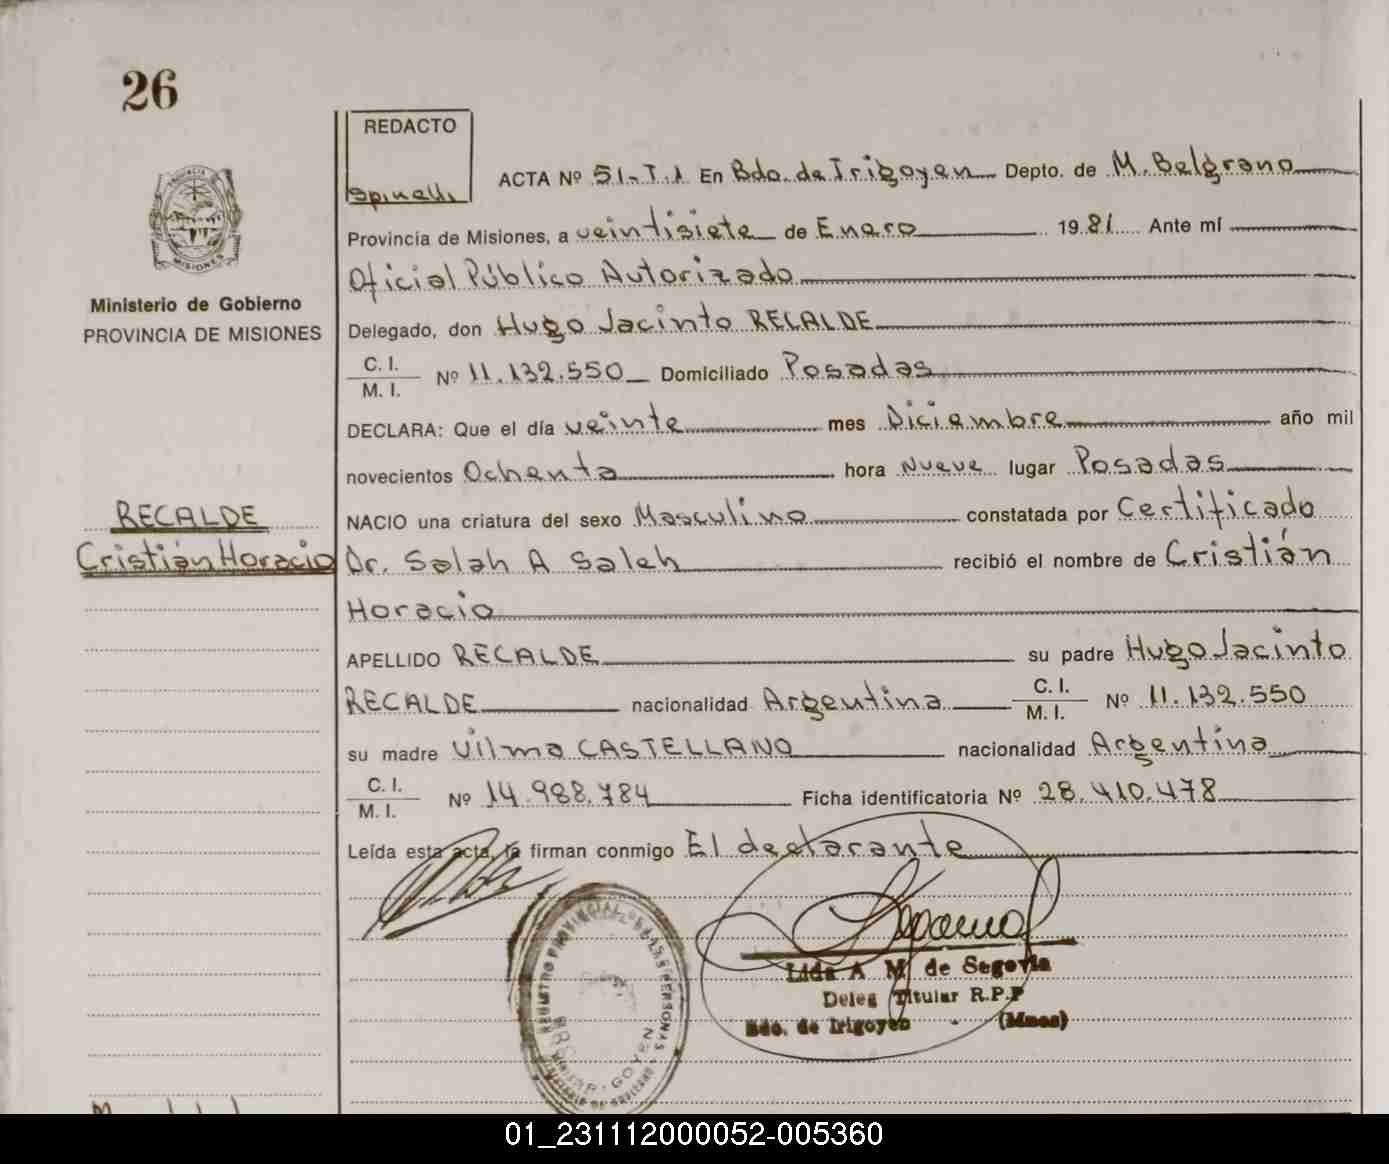 26
REDACTO
Spinelli
ACTA Nº 51-T.1 En Bdo. de Irigoyen Depto. de M. Belgrano
Provincia de Misiones, a veintisiete de Enero 1981 Ante mí
Oficial Público Autorizado
Ministerio de Gobierno
PROVINCIA DE MISIONES
Delegado, don Hugo Jacinto RECALDE
C. I.
M. I. Nº 11.132.550 Domiciliado Posadas
DECLARA: Que el día veinte mes Diciembre año mil
novecientos Ochenta hora Nueve lugar Posadas
RECALDE
Cristián Horacio
NACIO una criatura del sexo Masculino constatada por Certificado
Dr. Salah A Saleh recibió el nombre de Cristián
Horacio
APELLIDO RECALDE su padre Hugo Jacinto
RECALDE nacionalidad Argentina C. I. M. I. Nº 11.132.550
su madre Vilma CASTELLANO nacionalidad Argentina
C. I.
M. I. Nº 14.988.784 Ficha identificatoria Nº 28.410.478
Leída esta acta, la firman conmigo El declarante
Lida A M de Segovia
Deleg Titular R.P.P
Bdo. de Irigoyen (Mnes)
01_231112000052-005360